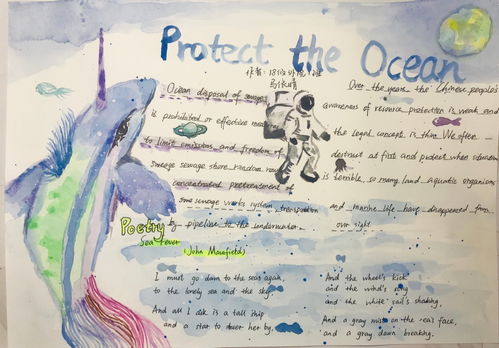 Protect the Ocean
作者: 18
Ocean disposal of sewage
is prohibited or effective measures
to limit emissions and freedom of
sewage sewage shore random row
concentrated pretreatment of
some sewage works system, transportation
by pipeline to the underwater
Over the years, the Chinese people's
awareness of resource protection is weak and
the legal concept is thin. We often
destruct at first and protect when
is terrible, so many land aquatic organisms
and marine life have disappeared from
our sight.
Poetry
Sea Fever
(John Masefield)
I must go down to the seas again,
to the lonely sea and the sky,
And all I ask is a tall ship
and a star to steer her by,
And the wheel's kick
and the wind's song
and the white sail's shaking,
And a gray mist on the sea's face,
and a gray dawn breaking.